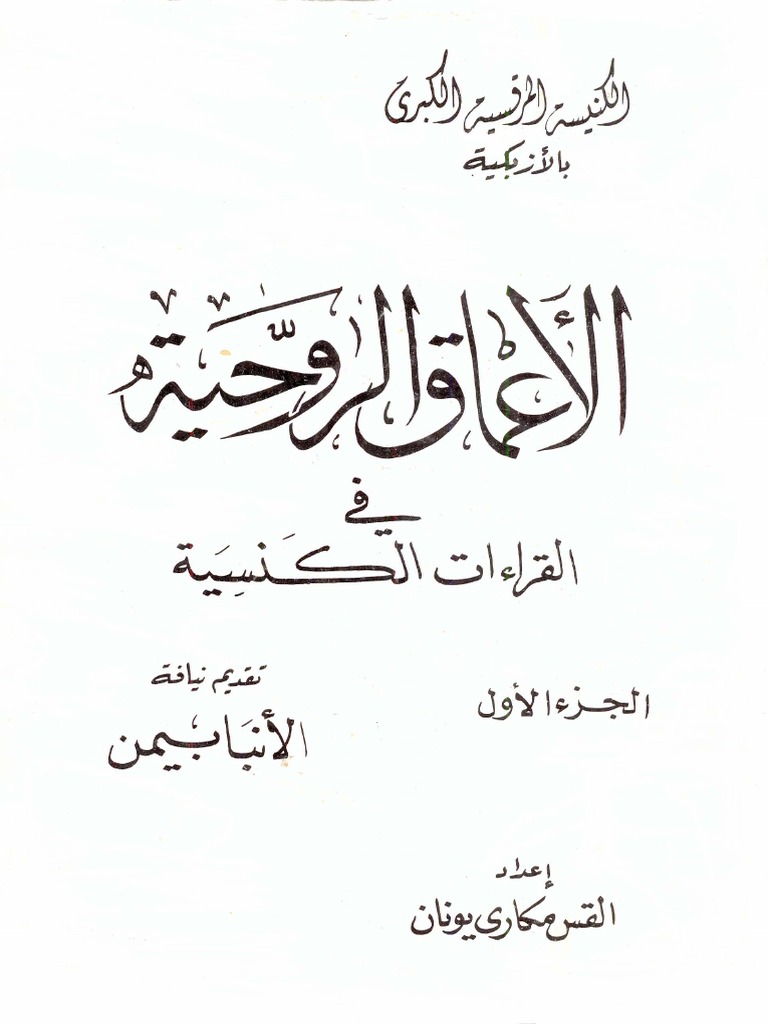 الكنيسة المرقسية الكبرى
بالأزبكية
الأعماق الروحّية
في
القراءات الكَنسِيَة
الجزء الأول
تقديم نيافة
الأنبَا بيمن
إعداد
القس مكارى يونان